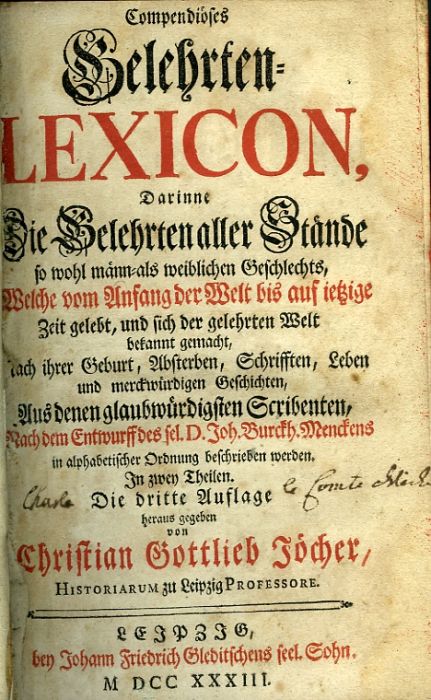 Compendiöses
Gelehrten-
LEXICON,
Darinne
Die Gelehrten aller Stände
so wohl männ-als weiblichen Geschlechts,
Welche vom Anfang der Welt bis auf ietzige
Zeit gelebt, und sich der gelehrten Welt
bekannt gemacht,
Nach ihrer Geburt, Absterben, Schrifften, Leben
und merckwürdigen Geschichten,
Aus denen glaubwürdigsten Scribenten,
Nach dem Entwurff des sel. D. Joh. Burckh. Menckens
in alphabetischer Ordnung beschrieben werden.
In zwey Theilen.
Die dritte Auflage
le Comte
heraus gegeben
von
Christian Gottlieb Jöcher,
HISTORIARUM zu Leipzig PROFESSORE.
LEJPZJG,
bey Johann Friedrich Gleditschens seel. Sohn.
M DCC XXXIII.